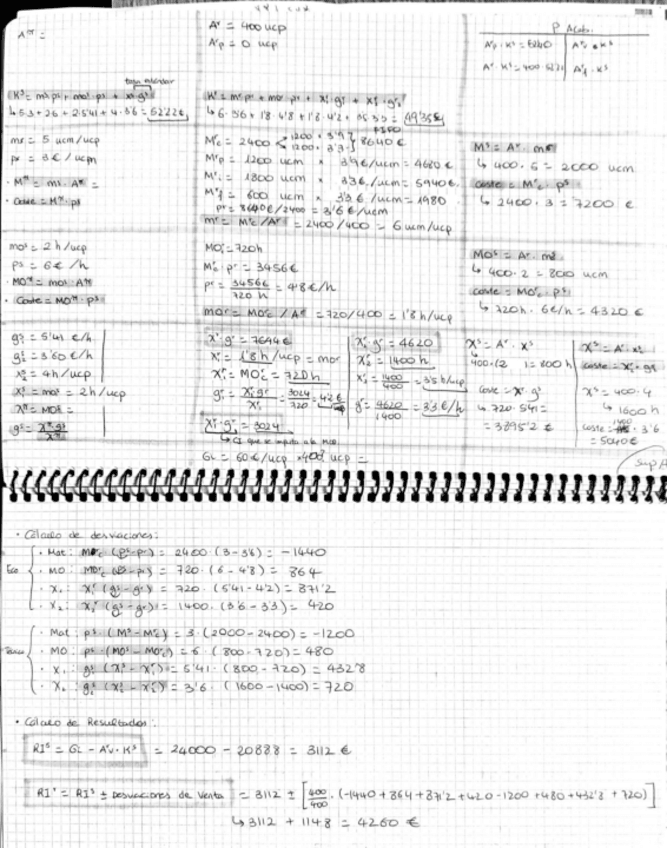 A^r = 400 ucp
A^r_p = 0 ucp
P. Acabs.
A^r_p · K^s = 5240
A^r_v · K^s
A^r_f · K^s
K^s = m^s p^s + mo^s · p^s + x^s · g^s
↳ 5·3 + 2·6 + 2·5'41 + 4·3'6 = 52'22 €
K^r = m^r p^r + mo^r · p^r + x^r_1 · g^r_1 + x^r_2 · g^r_2
m^s = 5 ucm/ucp
p^s = 3 € / ucm
· M^s = m^s · A^r =
· Coste = M^s · p^s
M^r_c = 2400 1200 · 3'9 1200 · 3'3 } 8640 €
FIFO
M^r_p = 1200 ucm × 3'9 €/ucm = 4680 €
M^r_i = 1800 ucm × 3'3 €/ucm = 5940 €
M^r_f = 600 ucm × 3'3 €/ucm = 1980
p^r = 8640 €/2400 = 3'6 €/ucm
m^r = M^r_c / A^r = 2400/400 = 6 ucm/ucp
M^s = A^r · m^s
↳ 400 · 5 = 2000 ucm
coste = M^r_c · p^s
↳ 2400 · 3 = 7200 €
mo^s = 2 h/ucp
p^s = 6 € /h
· Coste = MO^s · p^s
MO^r_c = 720 h
M^r_c · p^r = 3456 €
p^r = 3456 € / 720 h = 4'8 €/h
mo^r = MO^r_c / A^r = 720/400 = 1'8 h/ucp
MO^s = A^r · m^s
↳ 400 · 2 = 800 ucm
coste = MO^r_c · p^s
↳ 720 h · 6 €/h = 4320 €
g^s_1 = 5'41 €/h
g^s_2 = 3'60 €/h
x^s_2 = 4 h/ucp
x^s_1 = mo^s = 2 h/ucp
X^r · g^r = 7644 €
x^r_1 = 1'8 h/ucp = mo^r
X^r_1 = MO^r_c = 720 h
g^r_1 = X^r_1 · g^r_1 / X^r_1 = 3024 / 720 = 4'2 €
X^r_1 · g^r_1 = 3024
↳ CI que se imputa a la MOD
GL = 60 €/ucp × 400 ucp =
X^r · g^r = 4620
X^r_2 = 1400 h
x^r_2 = 1400 / 400 = 3'5 h/ucp
g^r_2 = 4620 / 1400 = 3'3 €/h
X^s = A^r · x^s
coste = X^r · g^s
↳ 720 · 5'41 =
= 3895'2 €
X^s = A^r · x^s_2
coste = X^r · g^s
X^s = 400 · 4
↳ 1600 h
coste = 1400 · 3'6
= 5040 €
· Cálculo de desviaciones:
Eco
· Mat: M^r_c (p^s - p^r) = 2400 · (3 - 3'6) = -1440
· MO: MO^r_c (p^s - p^r) = 720 · (6 - 4'8) = 864
· X_1: X^r_1 (g^s - g^r) = 720 · (5'41 - 4'2) = 871'2
· X_2: X^r_2 (g^s - g^r) = 1400 · (3'6 - 3'3) = 420
· Mat: p^s · (M^s - M^r_c) = 3 · (2000 - 2400) = -1200
· MO: p^s · (MO^s - MO^r_c) = 6 · (800 - 720) = 480
· X_1: g^s_1 (X^s_1 - X^r_1) = 5'41 · (800 - 720) = 432'8
· X_2: g^s_2 (X^s_2 - X^r_2) = 3'6 · (1600 - 1400) = 720
· Cálculo de Resultados:
RI^s = GL - A^r_v · K^s = 24000 - 20888 = 3112 €
RI^r = RI^s ± Desviaciones de Venta = 3112 ± [400/400 · (-1440 + 864 + 871'2 + 420 - 1200 + 480 + 432'8 + 720)]
↳ 3112 + 1148 = 4260 €